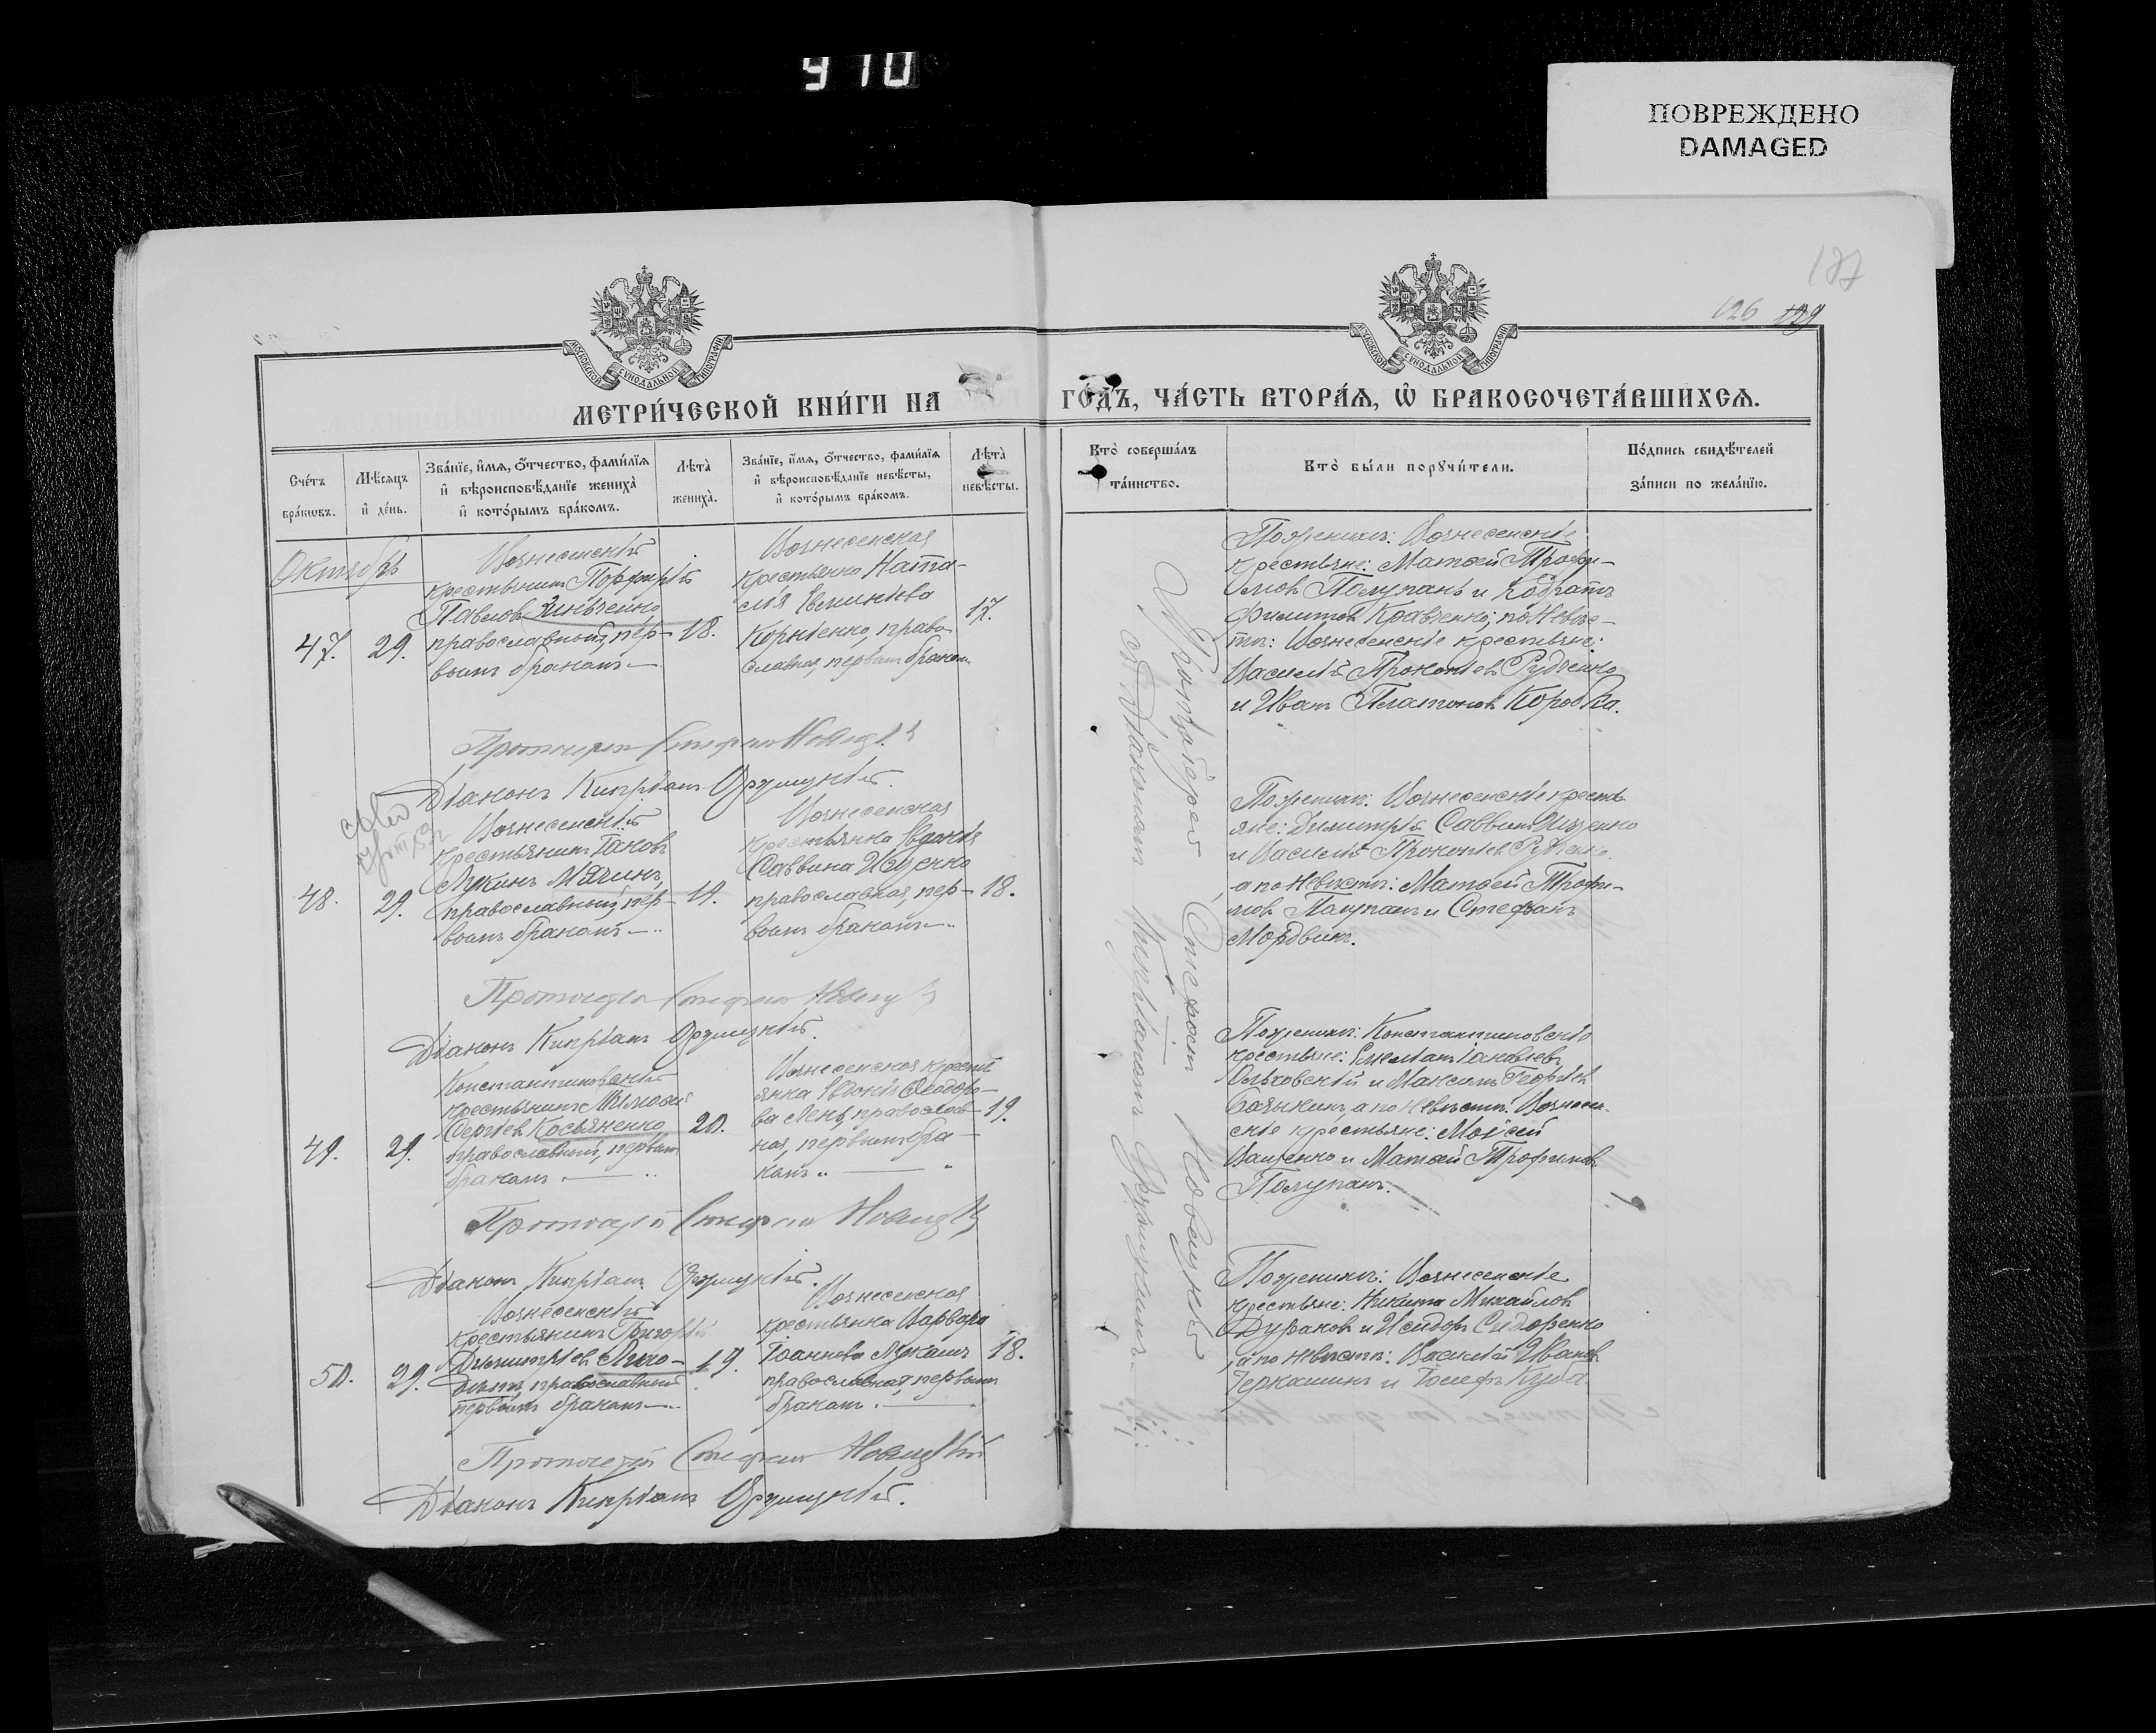 910
ПОВРЕЖДЕНО
DAMAGED
187
126 129
МОСКОВСКОЙ СѴНОДАЛЬНОЙ ТИПОГРАФІИ
МОСКОВСКОЙ СѴНОДАЛЬНОЙ ТИПОГРАФІИ
МЕТРИ́ЧЕСКОЙ КНИ́ГИ НА
ГО́ДЪ, ЧА́СТЬ ВТОРА́Ѧ, Ѡ҆ БРАКОСОЧЕТА́ВШИХСѦ.
Сче́тъ
бра́кѡвъ.
Мѣ́сяцъ
и҆ де́нь.
Зва́нїе, и҆́мѧ, ѻ҆́тчество, фами́лїѧ
и҆ вѣроисповѣ́данїе жениха̀
и҆ кото́рымъ бра́комъ.
Лѣта̀
жениха̀.
Зва́нїе, и҆́мѧ, ѻ҆́тчество, фами́лїѧ
и҆ вѣроисповѣ́данїе невѣ́сты,
и҆ кото́рымъ бра́комъ.
Лѣта̀
невѣ́сты.
Кто̀ соверша́лъ
та́инство.
Кто̀ бы́ли порꙋчи́тели.
По́дпись свидѣ́телей
за́писи по жела́нїю.
Октябрь
47.
29.
Вознесенскій
крестьянинъ Порфирій
Павловъ Зинченко
православный, пер-
вымъ бракомъ
18.
Вознесенская
крестьянка Ната-
лія
Корніенко, право-
славная, первымъ бракомъ
17.
По женихѣ: Вознесенскіе
крестьяне: Матѳей Трофи-
мовъ Полупанъ и Кодратъ
Филиповъ Кравченко; по невѣс-
тѣ: Вознесенскіе крестьяне:
Василій Прокопіевъ Рудченко
и Иванъ Платоновъ Коробка.
Протоіерей Стефанъ Новицкій
Діаконъ Кипріанъ Оржицкій.
48.
29.
Вознесенскій
крестьянинъ Іаковъ
Лукинъ Мячинъ,
православный, пер-
вымъ бракомъ
19.
Вознесенская
крестьянка Евдокія
Саввина Ищенко
православная, пер-
вымъ бракомъ
18.
По женихѣ: Вознесенскіе кресть
яне: Димитрій Саввинъ Ищенко
и Василій Прокопіевъ Рудченко,
а по невѣстѣ: Матѳей Трофи-
мовъ Полупанъ и Стефанъ
Мордвинъ.
Протоіерей Стефанъ Новицкій
Діаконъ Кипріанъ Оржицкій.
49.
29.
Константиновскій
крестьянинъ Тимоѳей
Сергіевъ Косьяненко
православный, первымъ
бракомъ
20.
Вознесенская кресть
янка Евдокія Ѳеодоро-
ва Лень, православ-
ная, первымъ бра-
комъ
19.
По женихѣ: Константиновскіе
крестьяне: Емеліанъ Іаковлевъ
Ольховскій и Максимъ Георгіевъ
а по невѣстѣ: Вознесен-
скіе крестьяне: Моѵсей
Ващенко и Матѳей Трофимовъ
Полупанъ.
Протоіерей Стефанъ Новицкій
Діаконъ Кипріанъ Оржицкій.
50.
29.
Вознесенскій
крестьянинъ Григорій
Димитріевъ
православный
первымъ бракомъ
19.
Вознесенская
крестьянка Варвара
Іоаннова
православная, первымъ
бракомъ
18.
По женихѣ: Вознесенскіе
крестьяне: Никита Михайловъ
Дураковъ и Исидоръ Сидоренко
, а по невѣстѣ: Василій Ивановъ
Черкашинъ и Іосифъ Куба.
Протоіерей Стефанъ Новицкій
Діаконъ Кипріанъ Оржицкій.
Протоіерей Стефанъ Новицкій
съ діакономъ Кипріаномъ Оржицкимъ